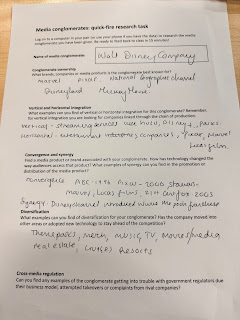 Media conglomerates: quick-fire research task
Log on to a computer in your pair (or use your phone if you have the data) to research the media
conglomerate you have been given. Be ready to feed back to class in 15 minutes!
Name of media conglomerate: Walt Disney Company
Conglomerate ownership
What brands, companies or media products is the conglomerate best known for?
Marvel Pixar National Geographic channel
Disneyland Mickey Mouse
Vertical and horizontal integration
What examples can you find of vertical or horizontal integration for this conglomerate? Remember,
for vertical integration you are looking for companies linked through the chain of production.
Vertical - streaming services like hulu, Disney+, parks
Horizontal - companies, Pixar, Marvel
Lucasfilm
Convergence and synergy
Find a media product or brand associated with your conglomerate. How has technology changed the
way audiences access that product? What examples of synergy can you find in the promotion or
distribution of the media product?
Convergence ABC - 1996 Pixar - 2006,
movies, Lucas films, 2003
Synergy - Disney channel introduced where the
Diversification
What examples can you find of diversification for your conglomerate? Has the company moved into
other areas or adopted new technology to stay ahead of the competition?
Themeparks, merch, music, TV, movies/media
real estate, cruises Resorts
Cross-media regulation
Can you find any examples of the conglomerate getting into trouble with government regulators due
their business model, attempted takeovers or complaints from rival companies?